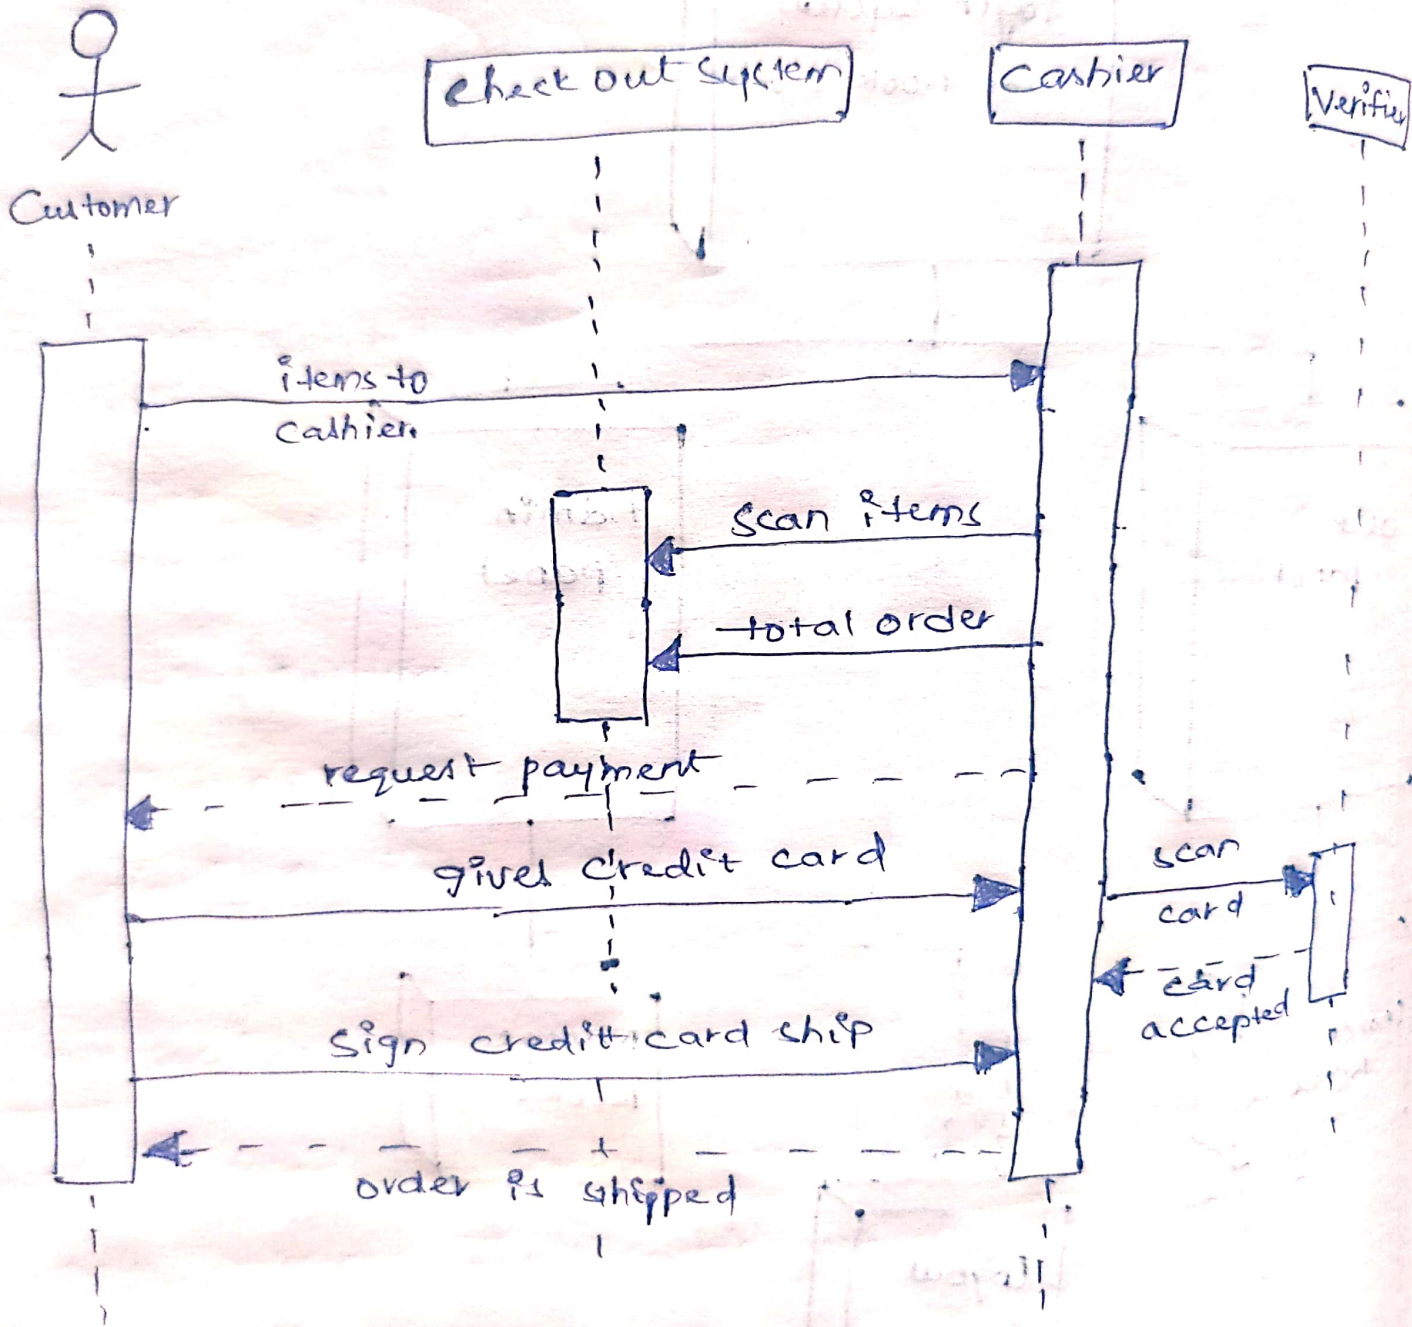 Check out system
Cashier
Verifier
Customer
items to
cashier.
scan items
total order
request payment
gives credit card
scan
card
card
accepted
sign credit card ship
order is shipped